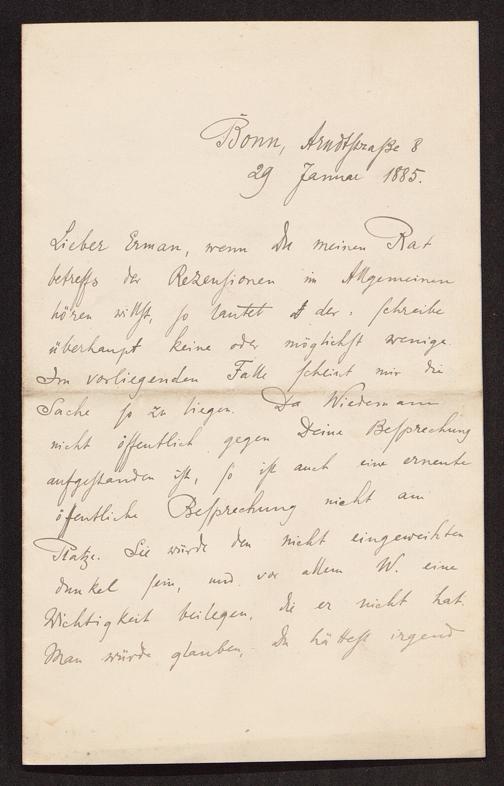 Bonn, Arndtstraße 8
29 Januar 1885.
Lieber Erman, wenn Du meinen Rat
betreffs der Rezensionen im Allgemeinen
hören willst, so lautet der: schreibe
überhaupt keine oder möglichst wenige.
Im vorliegenden Falle scheint mir die
Sache so zu liegen. Da Wiedemann
nicht öffentlich gegen Deine Besprechung
aufgestanden ist, so ist auch eine erneute
öffentliche Besprechung nicht am
Platze. Sie würde den nicht eingeweihten
dunkel sein, und vor allem W. eine
Wichtigkeit beilegen, die er nicht hat.
Man würde glauben, Du hättest irgend